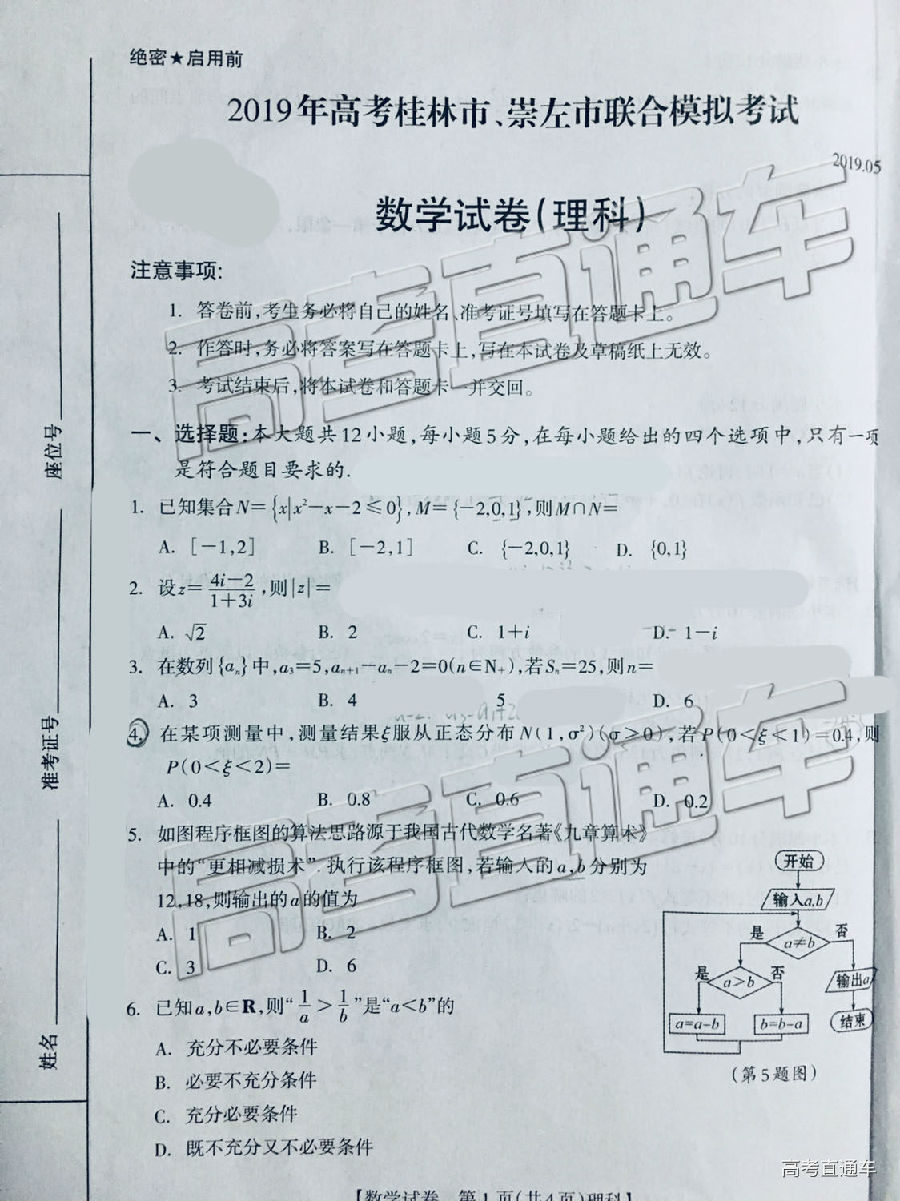 绝密★启用前
2019年高考桂林市、崇左市联合模拟考试
2019.05
数学试卷(理科)
注意事项:
1. 答卷前,考生务必将自己的姓名、准考证号填写在答题卡上。
2. 作答时,务必将答案写在答题卡上,写在本试卷及草稿纸上无效。
3. 考试结束后,将本试卷和答题卡一并交回。
一、选择题:本大题共12小题,每小题5分,在每小题给出的四个选项中,只有一项
是符合题目要求的.
1. 已知集合N={x|x²-x-2≤0},M={-2,0,1},则M∩N=
A. [-1,2] B. [-2,1] C. {-2,0,1} D. {0,1}
2. 设z=(4i-2)/(1+3i),则|z|=
A. √2 B. 2 C. 1+i D. 1-i
3. 在数列{aₙ}中,a₃=5,aₙ₊₁-aₙ-2=0(n∈N₊),若Sₙ=25,则n=
A. 3 B. 4 5 D. 6
4. 在某项测量中,测量结果ξ服从正态分布N(1,σ²)(σ>0),若P(0<ξ<1)=0.4,则
P(0<ξ<2)=
A. 0.4 B. 0.8 C. 0.6 D. 0.2
5. 如图程序框图的算法思路源于我国古代数学名著《九章算术》
中的“更相减损术”.执行该程序框图,若输入的a,b分别为
12,18,则输出的a的值为
A. 1 B. 2
C. 3 D. 6
开始
输入a,b
是 a≠b 否
是 a>b 否 输出a
a=a-b b=b-a 结束
(第5题图)
6. 已知a,b∈R,则“1/a>1/b”是“a<b”的
A. 充分不必要条件
B. 必要不充分条件
C. 充分必要条件
D. 既不充分又不必要条件
【数学试卷 第1页(共4页)理科】
座位号
准考证号
姓名
高考直通车
高考直通车
高考直通车